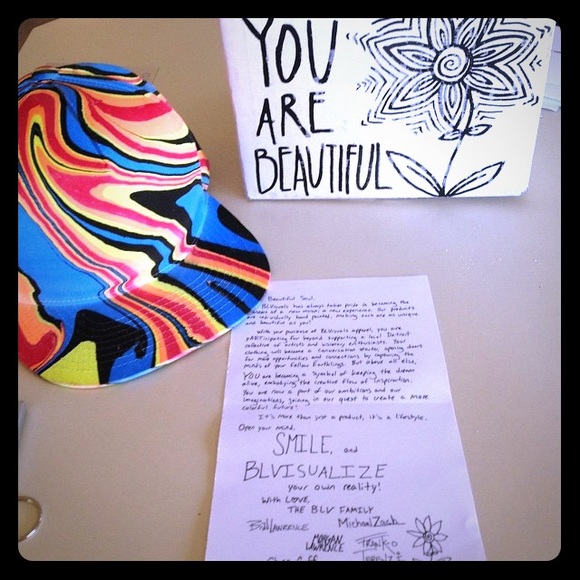 YOU
ARE
BEAUTIFUL
Beautiful Soul,
BLVisuals has always taken pride in becoming the
of a new vision; a new experience. Our products
are individually hand painted, making each one as unique
and beautiful as you!
With your purchase of BLVisuals apparel, you are
pARTicipating far beyond supporting a local Detroit
collective of artists and visionary enthusiasts. Your
clothing will become a conversation starter, opening doors
for new opportunities and connections by capturing the
minds of your fellow Earthlings. But above all else,
YOU are becoming a symbol of keeping the dream
alive, embodying the creative flow of inspiration.
You are now a part of our ambitions and our
imaginations, joining in our quest to create a more
colorful future!
It's more than just a product, it's a lifestyle.
Open your mind,
SMILE, and
BLVISUALIZE
your own reality!
With LOVE,
THE BLV FAMILY
Bill Lawrence Michael Zack
MORGAN LAWRENCE FRANKO